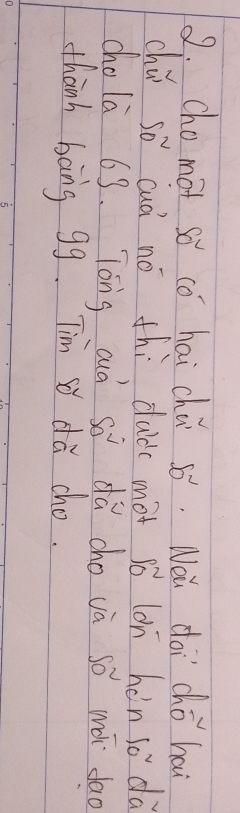 2. Cho một số có hai chữ số. Nếu đổi chỗ hai
chữ số của nó thì được một số lớn hơn số đã
cho là 63. Tổng của số đã cho và số mới tạo
thành bằng 99. Tìm số đã cho.